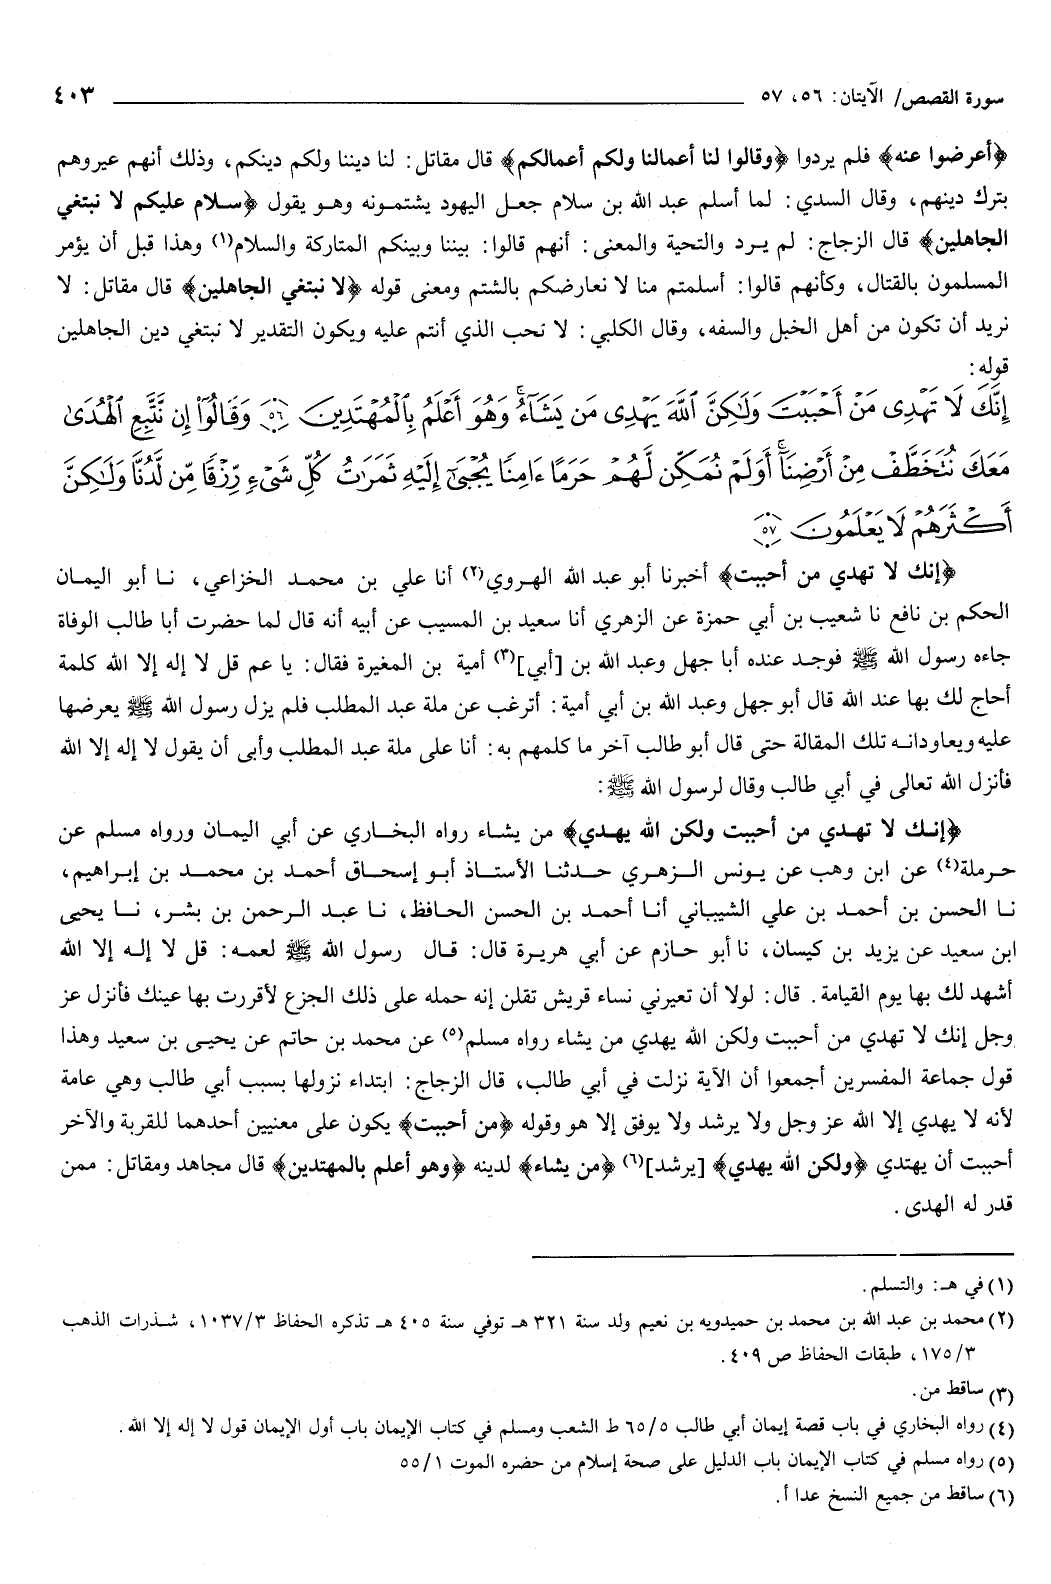 سورة القصص/ الآيتان: ٥٦، ٥٧ ٤٠٣
﴿أعرضوا عنه﴾ فلم يردوا ﴿وقالوا لنا أعمالنا ولكم أعمالكم﴾ قال مقاتل: لنا ديننا ولكم دينكم، وذلك أنهم عيروهم
بترك دينهم، وقال السدي: لما أسلم عبد الله بن سلام جعل اليهود يشتمونه وهو يقول ﴿سلام عليكم لا نبتغي
الجاهلين﴾ قال الزجاج: لم يرد والتحية والمعنى: أنهم قالوا: بيننا وبينكم المتاركة والسلام(١) وهذا قبل أن يؤمر
المسلمون بالقتال، وكأنهم قالوا: أسلمتم منا لا نعارضكم بالشتم ومعنى قوله ﴿لا نبتغي الجاهلين﴾ قال مقاتل: لا
نريد أن تكون من أهل الخبل والسفه، وقال الكلبي: لا نحب الذي أنتم عليه ويكون التقدير لا نبتغي دين الجاهلين
قوله:
إِنَّكَ لَا تَهْدِى مَنْ أَحْبَبْتَ وَلَٰكِنَّ ٱللَّهَ يَهْدِى مَن يَشَآءُ ۚ وَهُوَ أَعْلَمُ بِٱلْمُهْتَدِينَ ٥٦ وَقَالُوٓا۟ إِن نَّتَّبِعِ ٱلْهُدَىٰ
مَعَكَ نُتَخَطَّفْ مِنْ أَرْضِنَآ ۚ أَوَلَمْ نُمَكِّن لَّهُمْ حَرَمًا ءَامِنًا يُجْبَىٰٓ إِلَيْهِ ثَمَرَٰتُ كُلِّ شَىْءٍ رِّزْقًا مِّن لَّدُنَّا وَلَٰكِنَّ
أَكْثَرَهُمْ لَا يَعْلَمُونَ ٥٧
﴿إنك لا تهدي من أحببت﴾ أخبرنا أبو عبد الله الهروي(٢) أنا علي بن محمد الخزاعي، نا أبو اليمان
الحكم بن نافع نا شعيب بن أبي حمزة عن الزهري أنا سعيد بن المسيب عن أبيه أنه قال لما حضرت أبا طالب الوفاة
جاءه رسول الله ﷺ فوجد عنده أبا جهل وعبد الله بن [أبي](٣) أمية بن المغيرة فقال: يا عم قل لا إله إلا الله كلمة
أحاج لك بها عند الله قال أبو جهل وعبد الله بن أبي أمية: أترغب عن ملة عبد المطلب فلم يزل رسول الله ﷺ يعرضها
عليه ويعاودانه تلك المقالة حتى قال أبو طالب آخر ما كلمهم به: أنا على ملة عبد المطلب وأبى أن يقول لا إله إلا الله
فأنزل الله تعالى في أبي طالب وقال لرسول الله ﷺ:
﴿إنك لا تهدي من أحببت ولكن الله يهدي﴾ من يشاء رواه البخاري عن أبي اليمان ورواه مسلم عن
حرملة(٤) عن ابن وهب عن يونس الزهري حدثنا الأستاذ أبو إسحاق أحمد بن محمد بن إبراهيم،
نا الحسن بن أحمد بن علي الشيباني أنا أحمد بن الحسن الحافظ، نا عبد الرحمن بن بشر، نا يحيى
ابن سعيد عن يزيد بن كيسان، نا أبو حازم عن أبي هريرة قال: قال رسول الله ﷺ لعمه: قل لا إله إلا الله
أشهد لك بها يوم القيامة. قال: لولا أن تعيرني نساء قريش تقلن إنه حمله على ذلك الجزع لأقررت بها عينك فأنزل عز
وجل إنك لا تهدي من أحببت ولكن الله يهدي من يشاء رواه مسلم(٥) عن محمد بن حاتم عن يحيى بن سعيد وهذا
قول جماعة المفسرين أجمعوا أن الآية نزلت في أبي طالب، قال الزجاج: ابتداء نزولها بسبب أبي طالب وهي عامة
لأنه لا يهدي إلا الله عز وجل ولا يرشد ولا يوفق إلا هو وقوله ﴿من أحببت﴾ يكون على معنيين أحدهما للقربة والآخر
أحببت أن يهتدي ﴿ولكن الله يهدي﴾ [يرشد](٦) ﴿من يشاء﴾ لدينه ﴿وهو أعلم بالمهتدين﴾ قال مجاهد ومقاتل: ممن
قدر له الهدى.
(١) في هـ: والتسلم.
(٢) محمد بن عبد الله بن محمد بن حميدويه بن نعيم ولد سنة ٣٢١ هـ توفي سنة ٤٠٥ هـ تذكره الحفاظ ١٠٣٧/٣، شذرات الذهب
١٧٥/٣، طبقات الحفاظ ص ٤٠٩.
(٣) ساقط من.
(٤) رواه البخاري في باب قصة إيمان أبي طالب ٦٥/٥ ط الشعب ومسلم في كتاب الإيمان باب أول الإيمان قول لا إله إلا الله.
(٥) رواه مسلم في كتاب الإيمان باب الدليل على صحة إسلام من حضره الموت ٥٥/١
(٦) ساقط من جميع النسخ عدا أ.